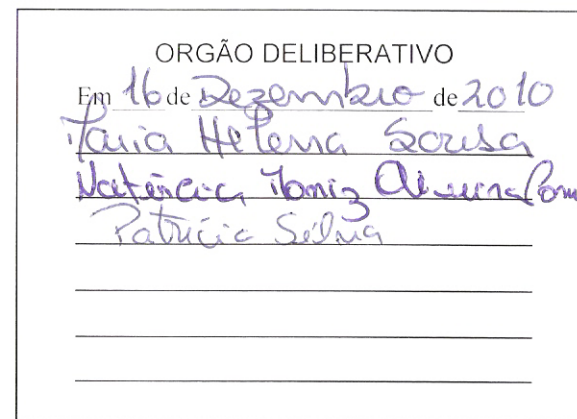 ORGÃO DELIBERATIVO
Em 16 de Dezembro de 2010
Maria Helena Sousa
Natércia Moniz
Patrícia Silva